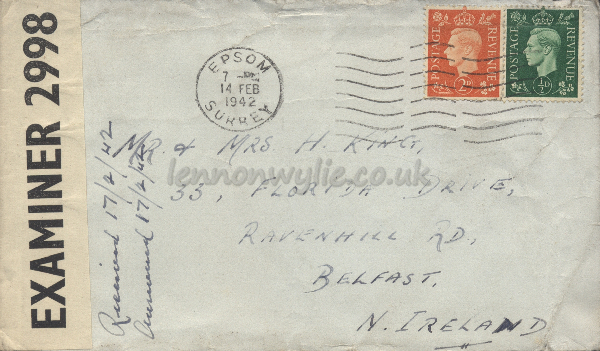 EXAMINER 2998
EPSOM
7 - PM
14 FEB
1942
SURREY
POSTAGE REVENUE
2D
POSTAGE REVENUE
½D
MR. & MRS H. KING,
33, FLORIDA DRIVE,
RAVENHILL RD,
BELFAST,
N. IRELAND
Received 17/2/42
Answered 17/2/42
lennonwylie.co.uk